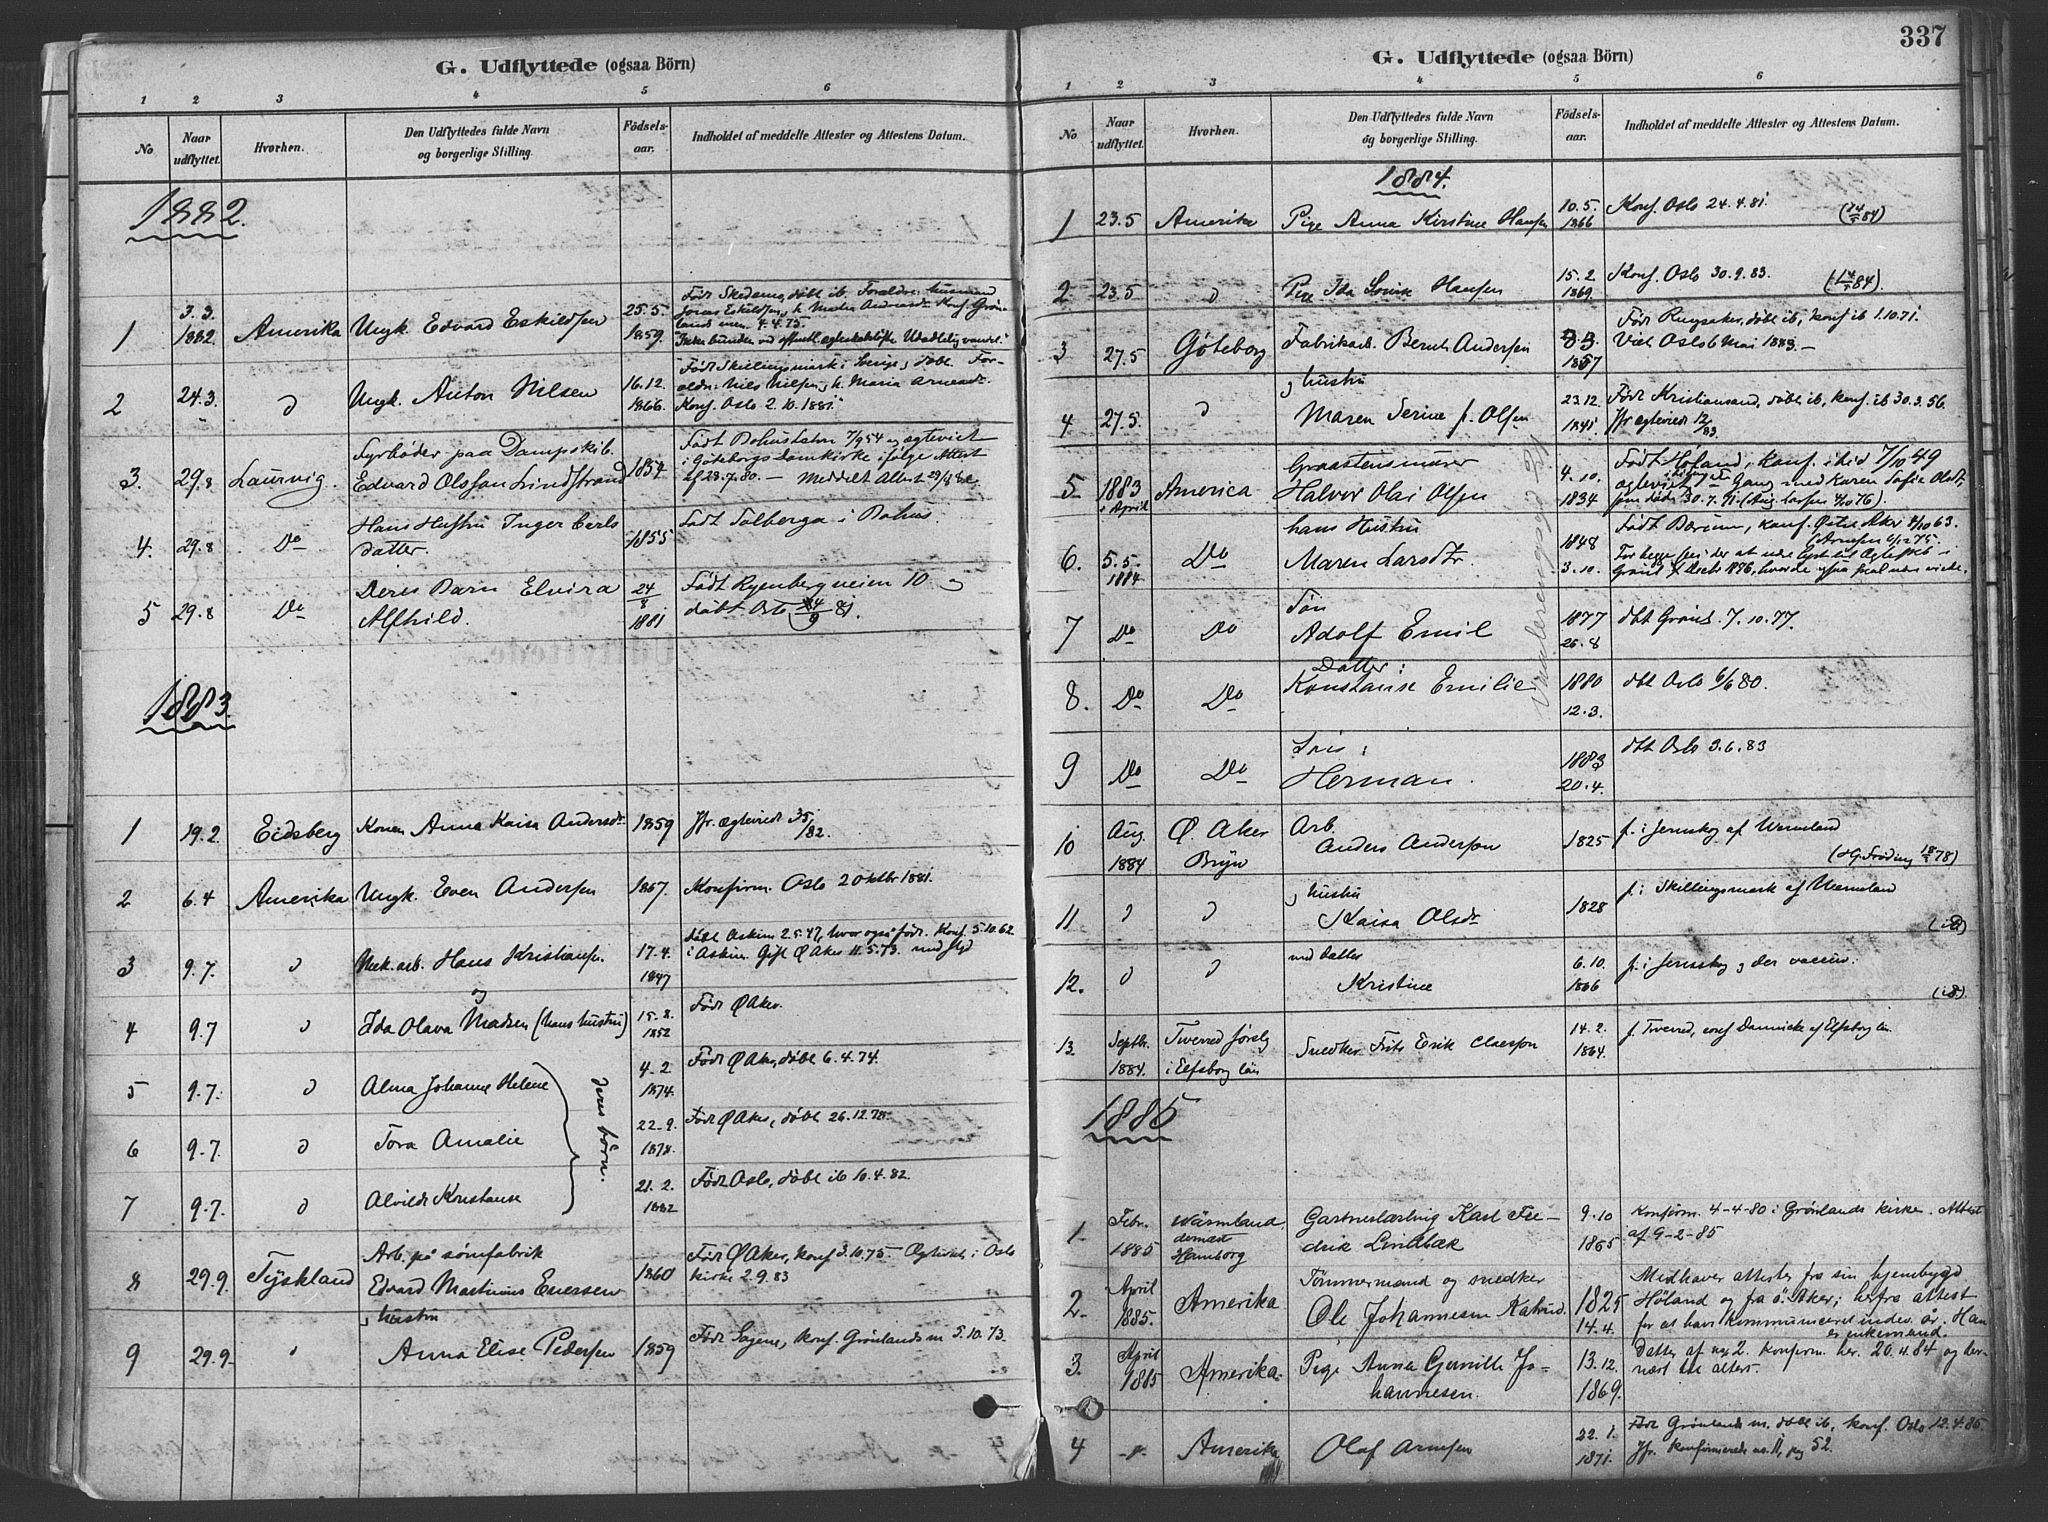 G. Udflyttede (ogsaa Börn)
1 2 3 4 5 6
No
Naar udflyttet.
Hvorhen.
Den Udflyttedes fulde Navn og borgerlige Stilling.
Födsels-aar.
Indholdet af meddelte Attester og Attestens Datum.
1882.
1 3.3. 1882. Amerika Ungk. Edvard Eskildsen 25.5. 1859.
Født Skedsmo, døbt ib. Forældre: husmand
Jonas Eskildsen, h. Maten Konf. Grøn-
lands men. 4.4.75.
2 24.3. d Ungk. Anton Nilsen 16.12. 1866.
Født Skillingsmark i Sverige, døbt. For-
ældre: Nils Nilsen, h. Maria
Konf. Oslo 2.10.1881.
3. 29.8 Laurvig. Fyrbøder paa Dampskib. Edvard Olsson Lindstrand 1854
Født Bohuslehn 7/9 54 og ægteviet
i Göteborgs Domkirke ifølge Attest
af 28.7.80. — Meddelt Attest 29/8 82.
4. 29.8 Do Hans Hustru Inger Carls datter. 1855 Født Solberga i Bohus.
5 29.8 Do Deres Barn Elvira Alfhild. 24/8 1881 Født Ryenbergveien 10 og
døbt Oslo 4/9 81.
1883.
1 19.2. Eidsberg Konen Anna Kaisa Andersdr 1859 Jfr. ægteviede 35/82.
2 6.4 Amerika Ungk. Even Andersen 1867. Konfirm. Oslo 2 oktbr 1881.
3 9.7. d Mek. arb. Hans Kristiansen 17.4. 1847
døbt Askim 2.5.47, hvor også født. Konf. 5.10.62
i Askim. Gift Ø Aker 11.5.73. med flgd
og
4 9.7 d Ida Olava Madsen (hans hustru) 15.8. 1852 Født Ø Aker.
5 9.7. d Alma Johanne Helene 4.2 1874. Født Ø Aker, døbt 6.4.74.
6 9.7. d Tora Amalie 22.9. 1878. Født Ø Aker, døbt 26.12.78.
7 9.7. d Alvilde Kristanse 21.2. 1882 Født Oslo, døbt ib 10.4.82.
deres børn.
8 29.9. Tyskland Arb. på sømfabrik Edvard Martinius Evensen 1860
Født Ø Aker, konf 3.10.75. Ægteviet i Oslo
kirke 2.9.83
9 29.9. " og hustru Anna Elise Pedersen 1859 Født Sagene, konf. Grønlands m 5.10.73.
337
G. Udflyttede (ogsaa Börn)
1 2 3 4 5 6
No
Naar udflyttet.
Hvorhen.
Den Udflyttedes fulde Navn og borgerlige Stilling.
Födsels-aar.
Indholdet af meddelte Attester og Attestens Datum.
1884.
1 23.5 Amerika Pige Anna Kirstine Hansen 10.5. 1866 Konf. Oslo 24.4.81. (14/5 84)
2 23.5 d Pige Ida Lovise Hansen 15.2 1869. Konf. Oslo 30.9.83. (14/5 84).
3 27.5 Göteborg Fabrikarb. Bernt Andersen 3.3. 1857
Født Ringsaker, døbt ib, konf ib 1.10.71.
Viet Oslo 6 Mai 1883. —
4 27.5. d og hustru Maren Serine f. Olsen 23.12. 1841
Født Kristiansand, døbt ib, konf. ib 30.3.56.
Jfr ægteviede 12/83.
5 1883 i April America Graastensmurer Halvor Olai Olsen 4.10. 1834
Født Høland, konf. i Lid 7/10 49
ægteviet Gang med Karen Sofie Olsdt,
som døde 30.7.71.
6. 5.5. 1884 Do hans Hustru Maren Larsdtr. 1848 3.10.
Født Bærum, konf. Østre Aker 4/10 63.
7 Do Do Søn Adolf Emil 1877 26.8 dbt Grønl. 7.10.77.
8. Do Do Datter: Konstanse Emilie 1880 12.3. dbt Oslo 6/6 80.
9 Do Do Herman. 1883 20.4. dbt Oslo 3.6.83
10 Aug. 1884 Ø. Aker Bryn Arb. Anders Anderson 1825 f. i Jernskog af Wermeland
(HG. Fröding 18/5 78)
11 d d og hustru Kaisa Olsdr 1828 f. i Skillingsmark af Wermeland
12. d d med datter Kristine 6.10. 1866 f. i Jernskog og der vaccin.
13. Septbr. 1884. i Elfsborg län Snedker Frits Erik Claesson 14.2. 1864.
1885
1. Febr. 1885 Wärmland dernæst Hamborg Gartnerlærling Karl Fre-
drik Lindbæk 9.10 1865
Konfirm. 4-4-80 i Grønlands kirke. Attest
af 9-2-85
2. April 1885. Amerika Tömmermand og snedker Ole Johannesen Katrud. 1825 14.4.
Medhaver attester fra sin hjembygd
Höland og fra ö. Aker; herfra attest
for at have kommuniceret indev. år. Han
er enkemand.
3. April 1885 Amerika. Pige Anna Gunille Jo-
hannesen. 13.12. 1869.
Datter af no 2. Konfirm. her. 20.4.84 og her-
nært til alters.
4 -"- Amerika Olaf Arnesen 22.1. 1871.
Født Grønlands m. døbt ib, konf. Oslo 12.4.85.
Jfr. konfirmerede no. 11, pag 52.